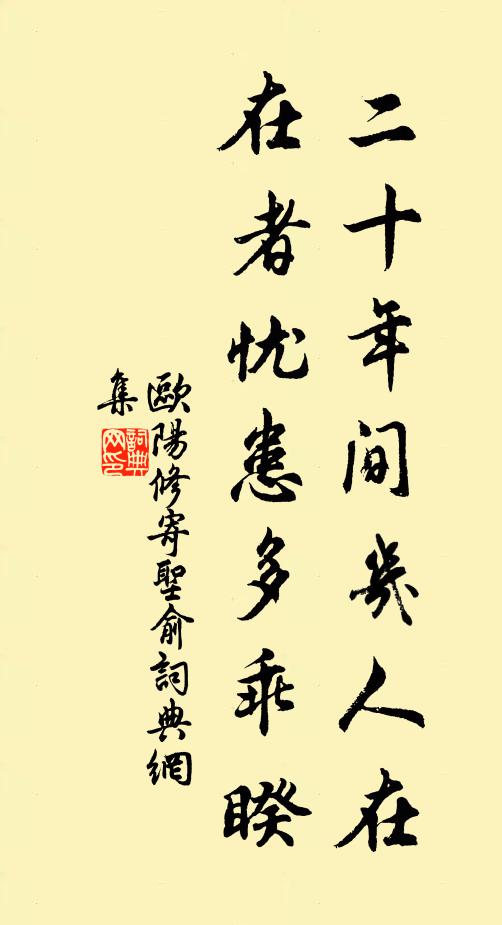 二十年间幾人在
在者忧患多乖睽
歐陽修寄聖俞詞典網
集
詞典网印